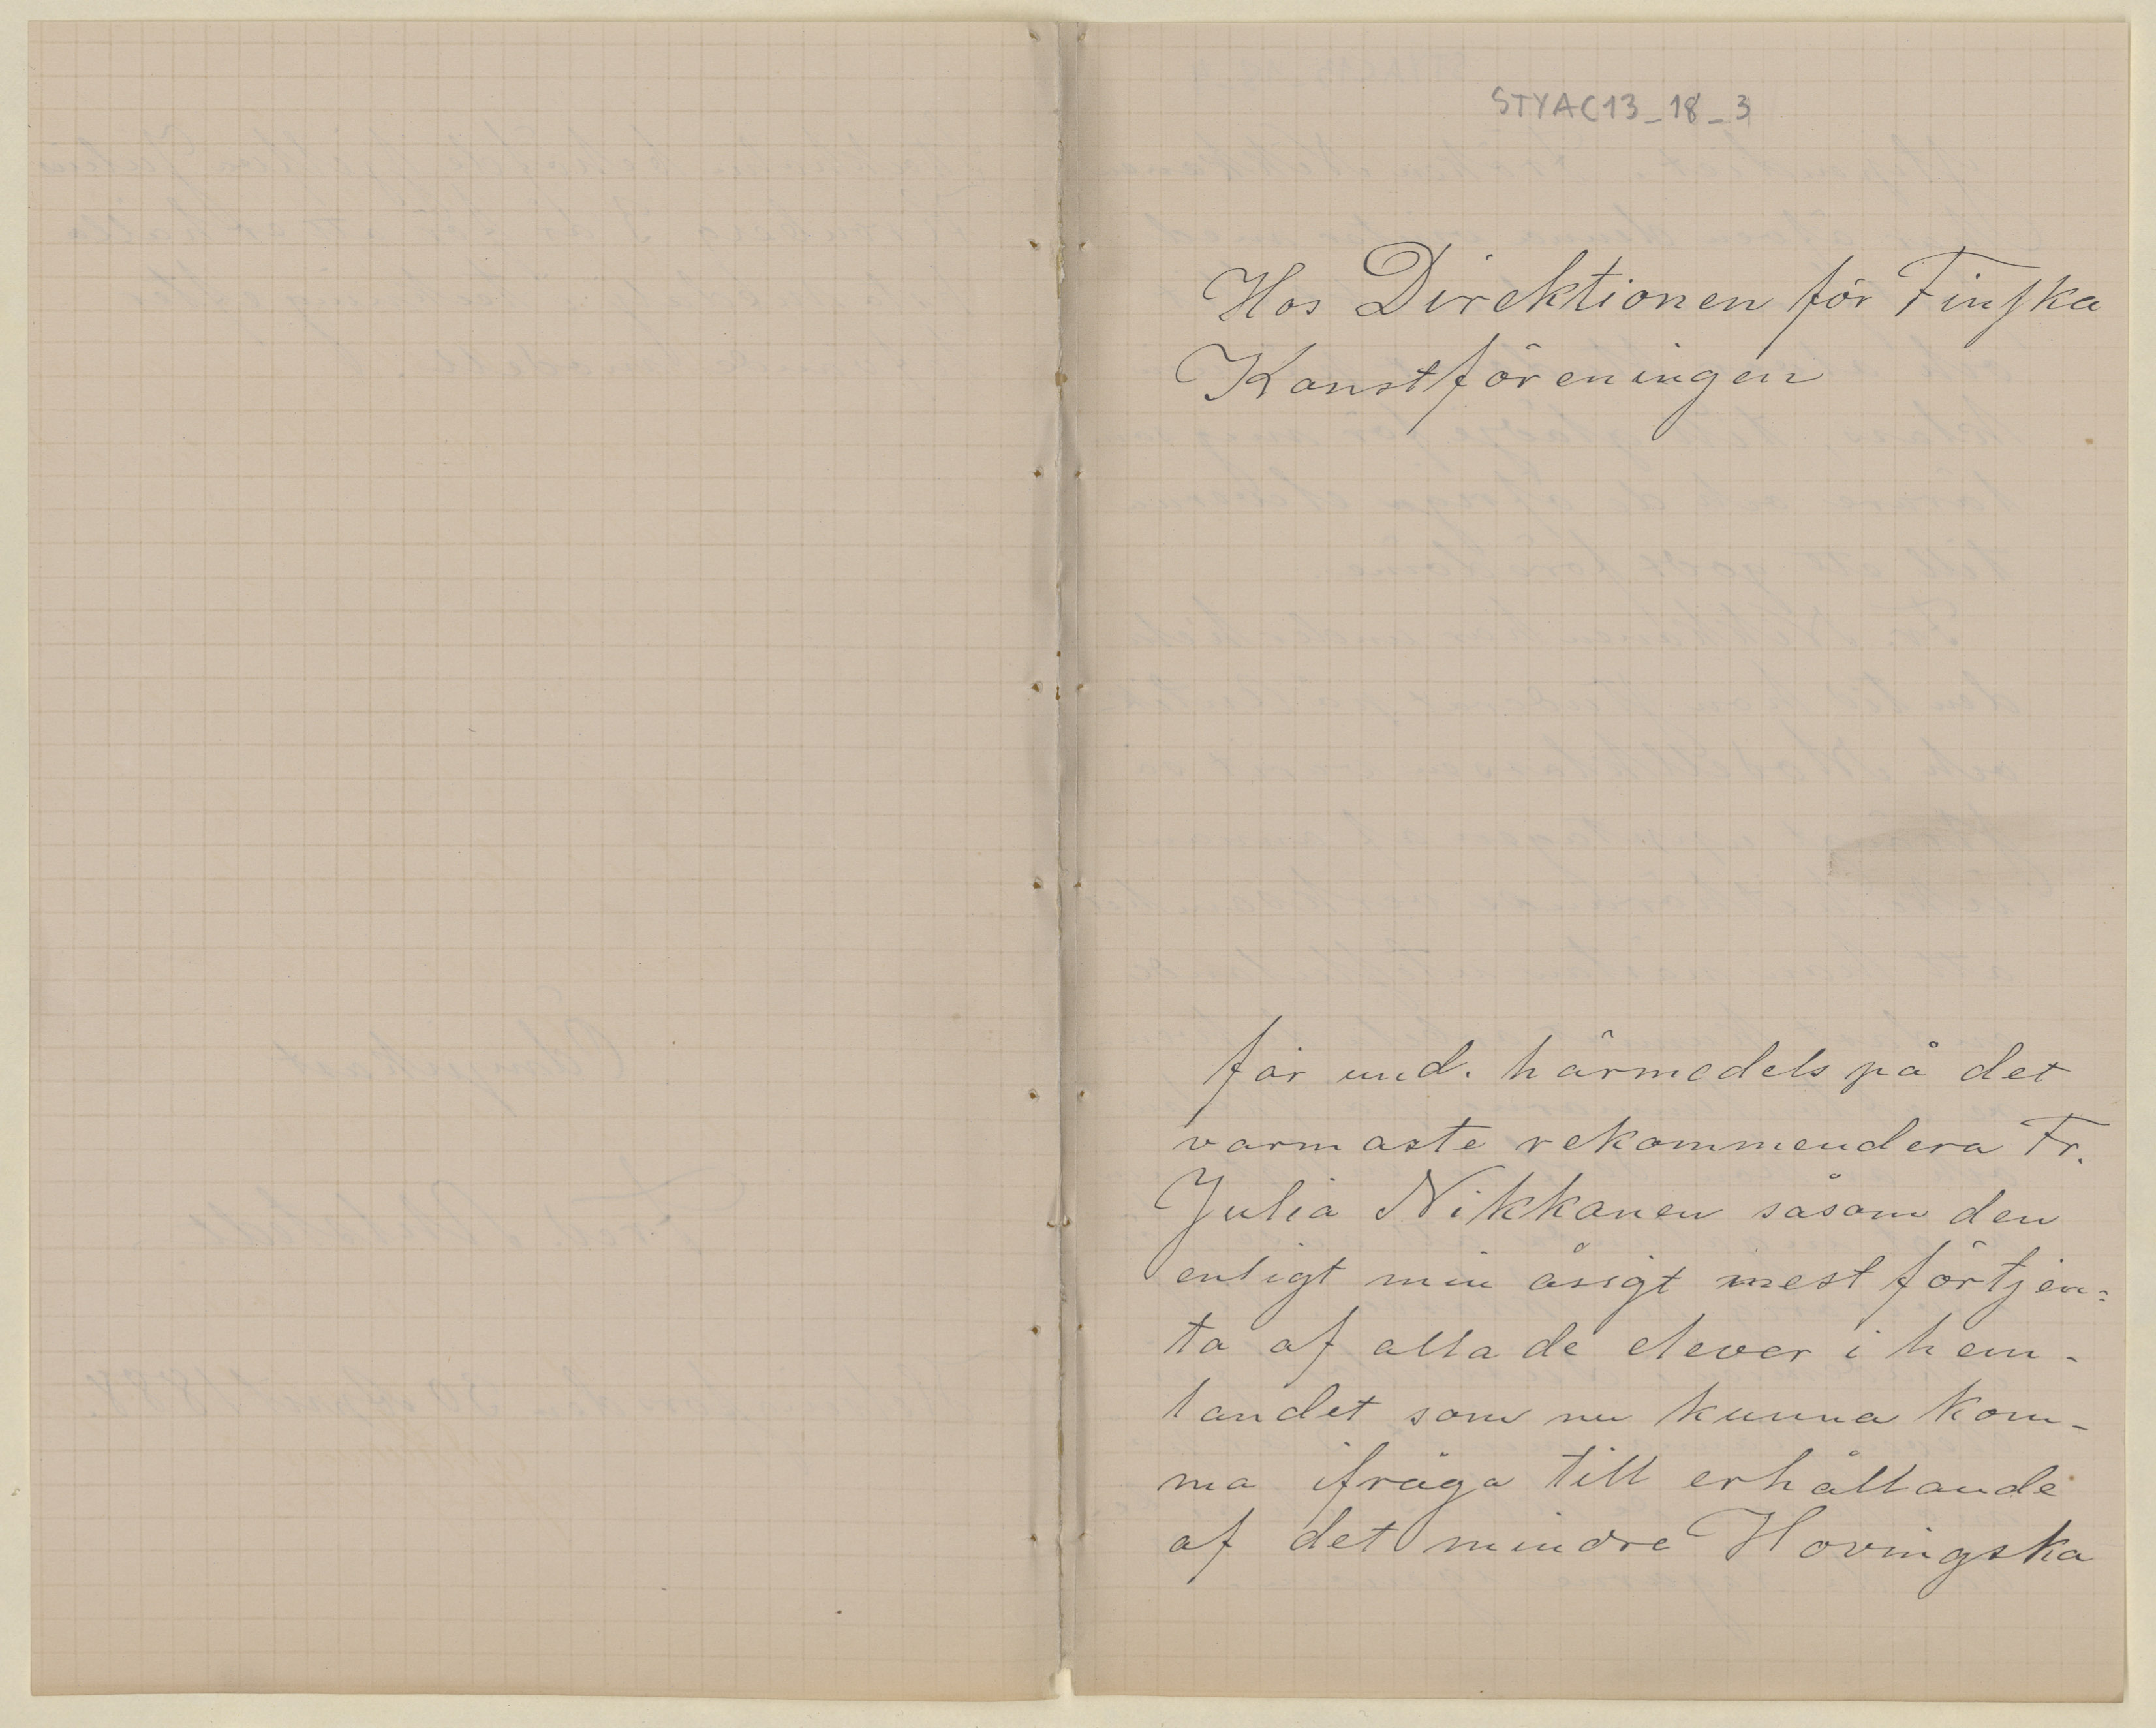 STYAC13_18_3
Hos Direktionen för Finska
Konstföreningen
får und. härmedels på det
varmaste rekommendera Fr.
Julia Nikkanen såsom den
enligt min åsigt mest förtjen=
ta af alla de elever i hem-
landet som nu kunna kom-
ma ifråga till erhållande
af det mindre Hovingska